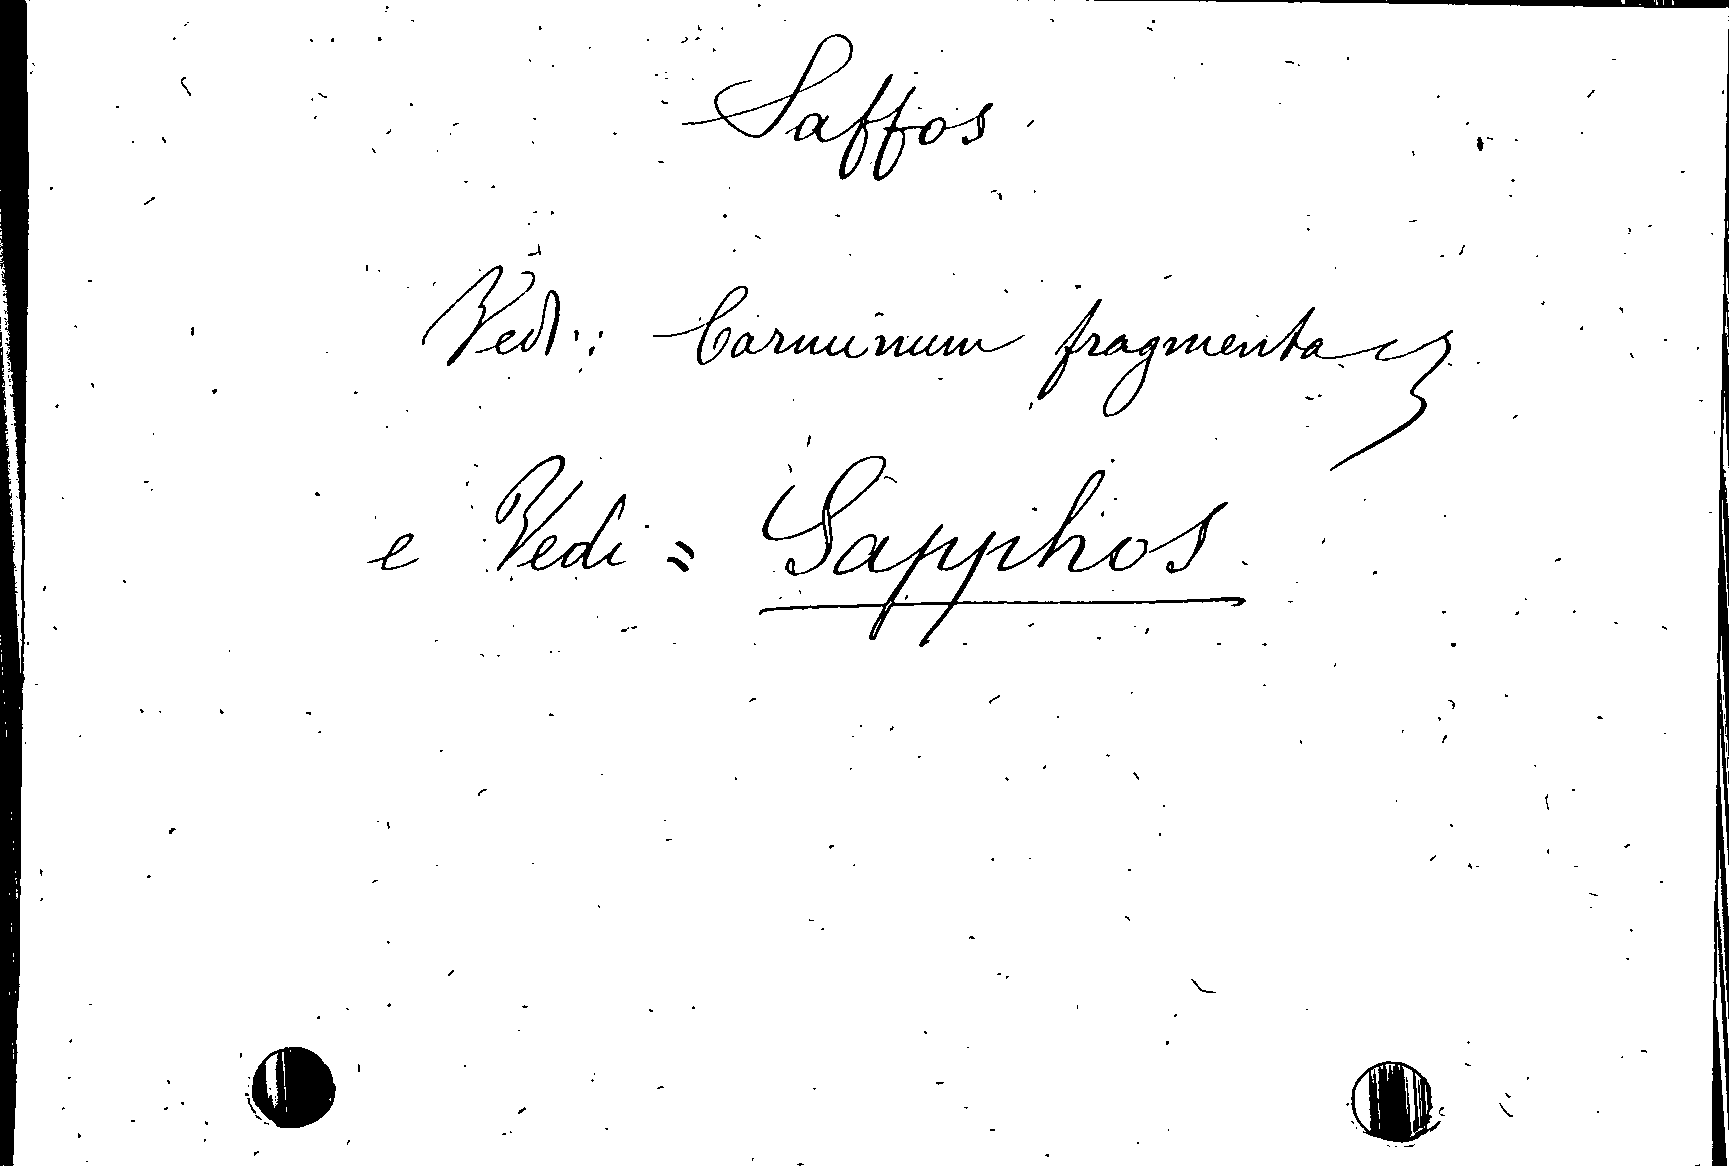 Saffos
Vedi: Carminum fragmenta
e Vedi = Sapphos